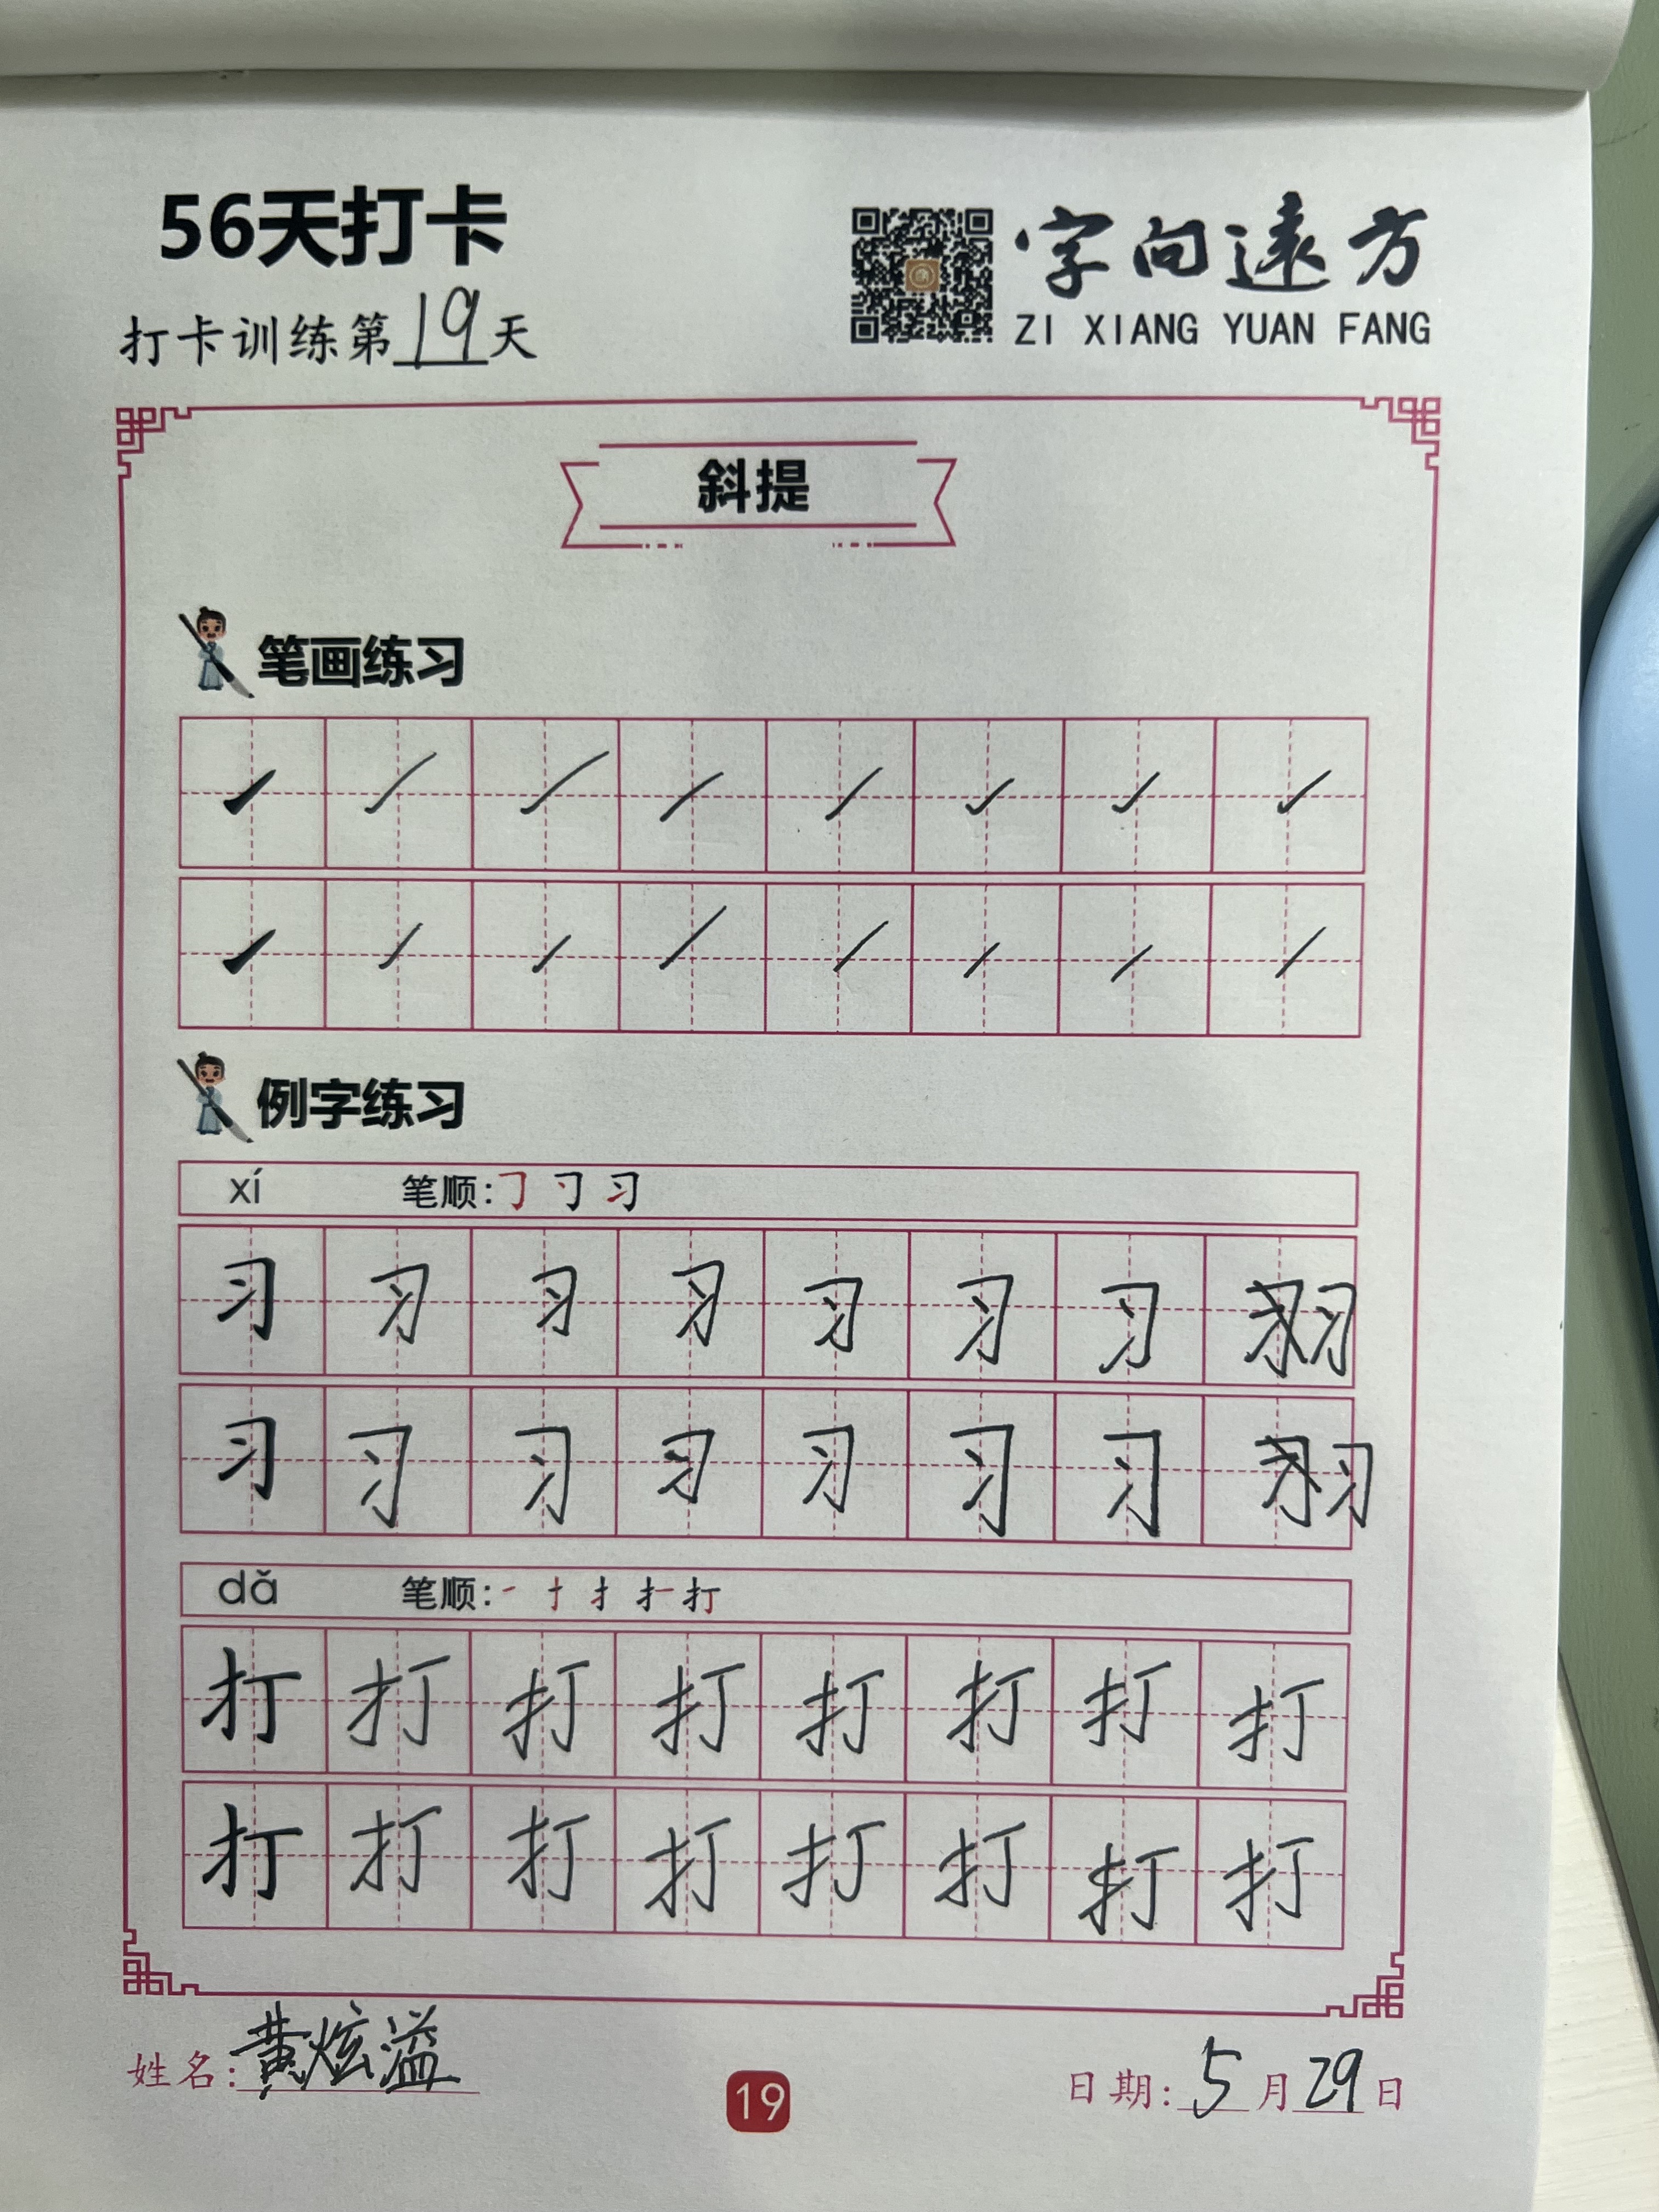 56天打卡
打卡训练第19天
字向遠方
ZI XIANG YUAN FANG
斜提
笔画练习
例字练习
xí 笔顺:㇆ 习
习 习 习 习 习 习 习 习
习 习 习 习 习 习 习 习
dǎ 笔顺:一 扌 打
打 打 打 打 打 打 打 打
打 打 打 打 打 打 打 打
姓名:黄炫溢
19
日期:5月29日